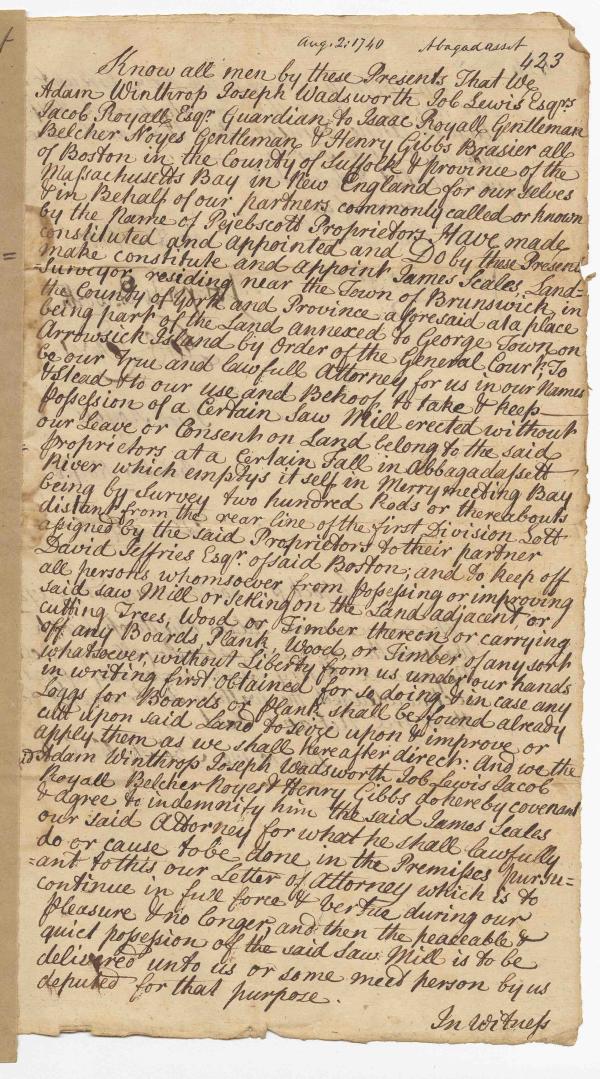 Aug. 2: 1740 Abagadasset
423
Know all men by these Presents That We
Adam Winthrop Joseph Wadsworth Job Lewis Esqrs
Jacob Royall Esqr. Guardian to Isaac Royall Gentleman
Belcher Noyes Gentleman & Henry Gibbs Brasier all
of Boston in the County of Suffolk & province of the
Massachusetts Bay in New England for our selves
& in Behalf of our partners commonly called or known
by the Name of Pejebscott Proprietors Have made
constituted and appointed and Do by these Presents
make constitute and appoint James Scales Land=
=Surveyor residing near the Town of Brunswick in
the County of York and Province aforesaid at a place
being part of the Land annexed to George Town on
Arrowsick Island by Order of the General Court. To
be our true and lawfull Attorney for us in our Names
& Stead & to our use and Behoof to take & keep
Possession of a Certain Saw Mill erected without
our Leave or Consent on Land belong to the said
Proprietors at a Certain Fall in Abbagadassett
River which emptys it self in Merrymeeting Bay
being by Survey two hundred Rods or thereabouts
distant from the rear line of the first Division Lott
assigned by the said Proprietors to their partner
David Jeffries Esqr. of said Boston; and to keep off
all persons whomsoever from possessing or improving
said saw Mill or setling on the Land adjacent, or
cutting Trees, Wood or Timber thereon or carrying
off any Boards Plank Wood or Timber of any sort
whatsoever, without Liberty from us under our hands
in writing first obtained for so doing & in case any
Loggs for Boards or plank shall be found already
cutt upon said Land to seize upon & improve or
apply them as we shall hereafter direct: And we the
sd Adam Winthrop Joseph Wadsworth Job Lewis Jacob
Royall Belcher Noyes & Henry Gibbs do hereby covenant
& agree to indemnify him the said James Scales
our said Attorney for what he shall lawfully
do or cause to be done in the Premisses pursu=
=ant to this our Letter of Attorney which is to
continue in full force & vertue during our
pleasure & no longer, and then the peaceable &
quiet possession of the said Saw Mill is to be
delivered unto us or some meet person by us
deputed for that purpose.
In Witness